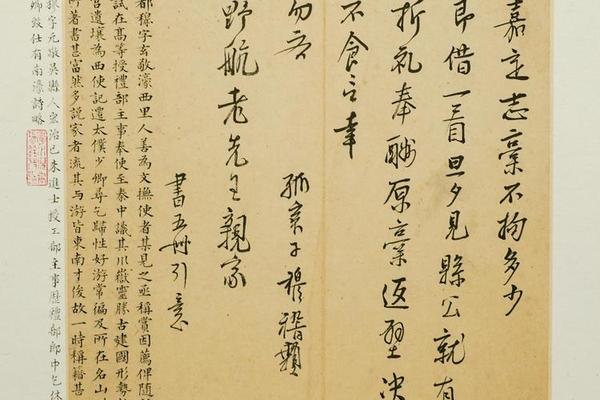 嘉定志藁不拘多少
即借一看旦夕見縣公就有
折礼奉酬原藁返璧決
不食言幸
勿吝
孤哀子穆稽顙
野航老先生親家
書五冊引意
都穆字玄敬濠西里人善為文撫使者某見之亟稱賞因薦俾隨
試在高等授禮部主事奉使至秦中議其川嶽靈勝古建國形勢
宮遺壤為西使記遷太僕少卿尋乞歸性好游常徧及所在名山
所著書甚富然多說家者流其与游皆東南才俊故一時稱籍甚
穆字元敬吳縣人宏治己未進士授工部主事歷禮部郎中乞休
卿致仕有南濠詩略